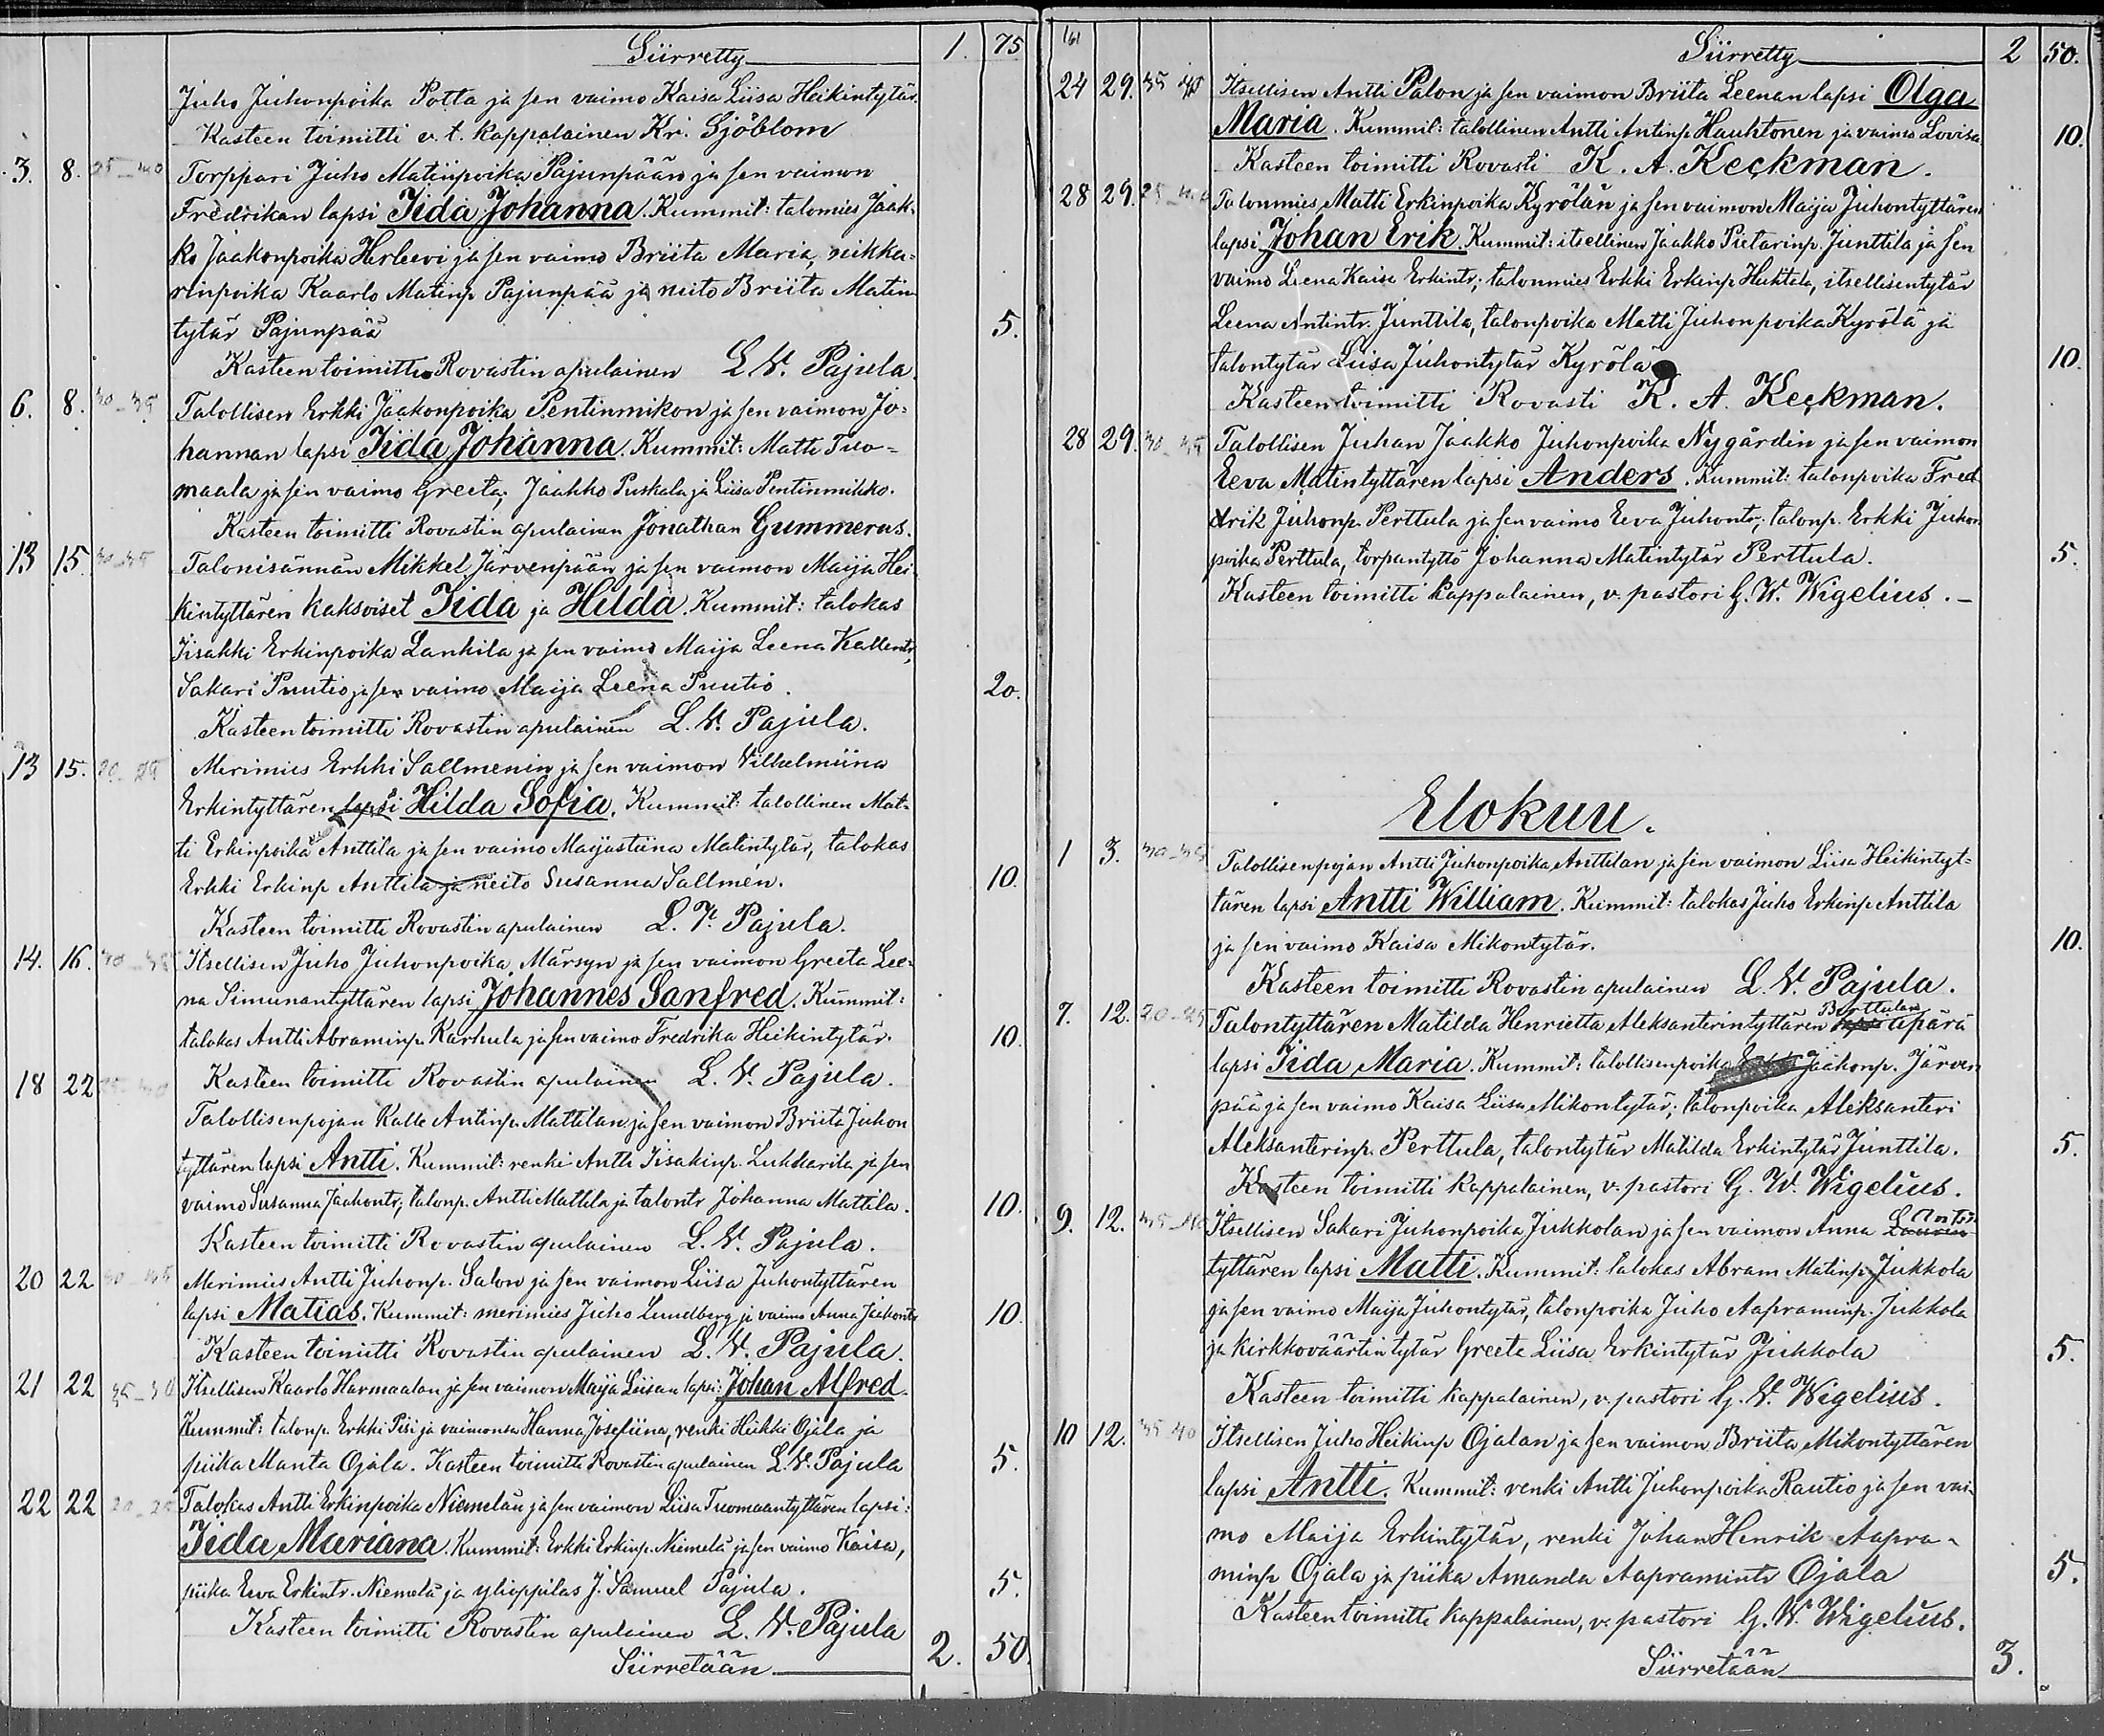 Siirretty 1. 75
Juho Juhonpoika Potta ja sen vaimo Kaisa Liisa Heikintytär.
Kasteen toimitti v. t. kappalainen Kr. Sjöblom
3. 8. 35-40 Torppari Juho Matinpoika Pajunpään ja sen vaimon
Fredrikan lapsi Iida Johanna. Kummit: talomies Jaak-
ko Jaakonpoika Herleevi ja sen vaimo Briita Maria, nikka-
rinpoika Kaarlo Matinp. Pajunpää ja neito Briita Matin-
tytär Pajunpää 5.
Kasteen toimitti Rovastin apulainen L. V. Pajula.
6. 8. 30-35 Talollisen Erkki Jaakonpoika Pentinmikon ja sen vaimon Jo-
hannan lapsi Iida Johanna. Kummit: Matti Tuo-
maala ja sen vaimo Greeta; Jaakko Puskala ja Liisa Pentinmikko.
Kasteen toimitti Rovastin apulainen Jonathan Gummerus.
13 15. 30-35 Talonisännän Mikkel Järvenpään ja sen vaimon Maija Hei-
kintyttären kaksoiset Iida ja Hilda. Kummit: talokas
Iisakki Erkinpoika Lankila ja sen vaimo Maija Leena Kallentr,
Sakari Puutio ja sen vaimo Maija Leena Puutio. 20.
Kasteen toimitti Rovastin apulainen L. V. Pajula.
13 15. Merimies Erkki Sallmenin ja sen vaimon Vilhelmiina
Erkintyttären lapsi Hilda Sofia. Kummit: talollinen Mat-
ti Erkinpoika Anttila ja sen vaimo Maijastiina Matintytär, talokas
Erkki Erkinp Anttila ja neito Susanna Sallmén. 10.
Kasteen toimitti Rovastin apulainen L. V. Pajula.
14. 16. 30-35 Itsellisen Juho Juhonpoika Märsyn ja sen vaimon Greeta Lee-
na Simunantyttären lapsi Johannes Sanfred. Kummit:
talokas Antti Abraminp. Karhula ja sen vaimo Fredrika Heikintytär. 10.
Kasteen toimitti Rovastin apulainen L. V. Pajula.
18 22 35-40 Talollisenpojan Kalle Antinp. Mattilan ja sen vaimon Briita Juhon
tyttären lapsi Antti. Kummit: renki Antti Iisakinp. Luhtarila ja sen
vaimo Susanna Jaakontr; talonp. Antti Mattila ja talontr Johanna Mattila. 10.
Kasteen toimitti Rovastin apulainen L. V. Pajula.
20 22 Merimies Antti Juhonp. Salon ja sen vaimon Liisa Juhontyttären
lapsi Matias. Kummit: merimies Juho Lundberg ja vaimo Anna Jaakontr 10.
Kasteen toimitti Rovastin apulainen L. V. Pajula.
21 22 Itsellisen Kaarlo Harmaalan ja sen vaimon Maija Liisan lapsi: Johan Alfred.
Kummit: talonp. Erkki Piri ja vaimonsa Hanna Josefiina, renki Heikki Ojala ja
piika Manta Ojala. Kasteen toimitti Rovastin apulainen L. V. Pajula 5.
22 22 Talokas Antti Erkinpoika Niemelän ja sen vaimon Liisa Tuomaantyttären lapsi:
Iida Mariana. Kummit: Erkki Erkinp. Niemelä ja sen vaimo Kaisa,
piika Eeva Erkintr. Niemelä ja ylioppilas J. Samuel Pajula. 5.
Kasteen toimitti Rovastin apulainen L. V. Pajula
Siirretään 2. 50.
161
Siirretty 2 50.
24 29. Itsellisen Antti Palon ja sen vaimon Briita Leenan lapsi Olga
Maria. Kummit: talollinen Antti Antinp Hauhtonen ja vaimo Lovisa. 10.
Kasteen toimitti Rovasti K. A. Keckman.
28 29. Talonmies Matti Erkinpoika Kyrölän ja sen vaimon Maija Juhontyttären
lapsi Johan Erik. Kummit: itsellinen Jaakko Pietarinp. Junttila ja sen
vaimo Leena Kaisa Erkintr; talonmies Erkki Erkinp Huhtala, itsellisentytär
Leena Antintr. Junttila, talonpoika Matti Juhonpoika Kyrölä ja
talontytär Liisa Juhontytär Kyrölä 10.
Kasteen toimitti Rovasti K. A. Keckman.
28 29. 30-35 Talollisen Juhan Jaakko Juhonpoika Nygårdin ja sen vaimon
Eeva Matintyttären lapsi Anders. Kummit: talonpoika Fred
drik Juhonp. Perttula ja sen vaimo Eeva Juhontr; talonp. Erkki Juhon
poika Perttula, torpantyttö Johanna Matintytär Perttula. 5.
Kasteen toimitti kappalainen, v. pastori G. W. Wigelius. -
Elokuu.
1 3. 30-35 Talollisenpojan Antti Juhonpoika Anttilan ja sen vaimon Liisa Heikintyt-
tären lapsi Antti William. Kummit: talokas Juho Erkinp Anttila
ja sen vaimo Kaisa Mikontytär. 10.
Kasteen toimitti Rovastin apulainen L. V. Pajula.
7. 12. 20-25 Talontyttären Matilda Henrietta Aleksanterintyttären Perttulan äpärä
lapsi Iida Maria. Kummit: talollisenpoika Jaakonp. Järven
pää ja sen vaimo Kaisa Liisa Mikontytär; talonpoika Aleksanteri
Aleksanterinp. Perttula, talontytär Matilda Erkintytär Junttila. 5.
Kasteen toimitti kappalainen, v. pastori G. W. Wigelius.
9. 12. 35-40 Itsellisen Sakari Juhonpoika Jukkolan ja sen vaimon Anna Laurin Antin
tyttären lapsi Matti. Kummit: talokas Abram Matinp. Jukkola
ja sen vaimo Maija Juhontytär, talonpoika Juho Aapraminp. Jukkola
ja kirkkoväärtin tytär Greeta Liisa Erkintytär Jukkola 5.
Kasteen toimitti kappalainen, v. pastori G. W. Wigelius.
10 12. 35 40 Itsellisen Juho Heikinp Ojalan ja sen vaimon Briita Mikontyttären
lapsi Antti. Kummit: renki Antti Juhonpoika Rautio ja sen vai-
mo Maija Erkintytär, renki Johan Henrik Aapra-
minp Ojala ja piika Amanda Aapramintr Ojala 5.
Kasteen toimitti kappalainen, v. pastori G. W. Wigelius.
Siirretään 3.